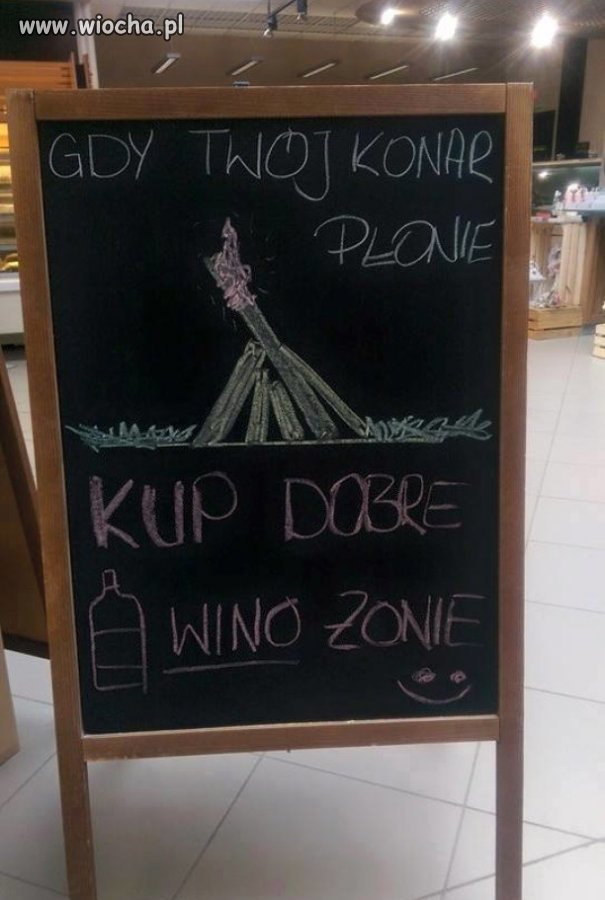 www.wiocha.pl
GDY TWÓJ KONAR
PŁONIE
KUP DOBRE
WINO ŻONIE